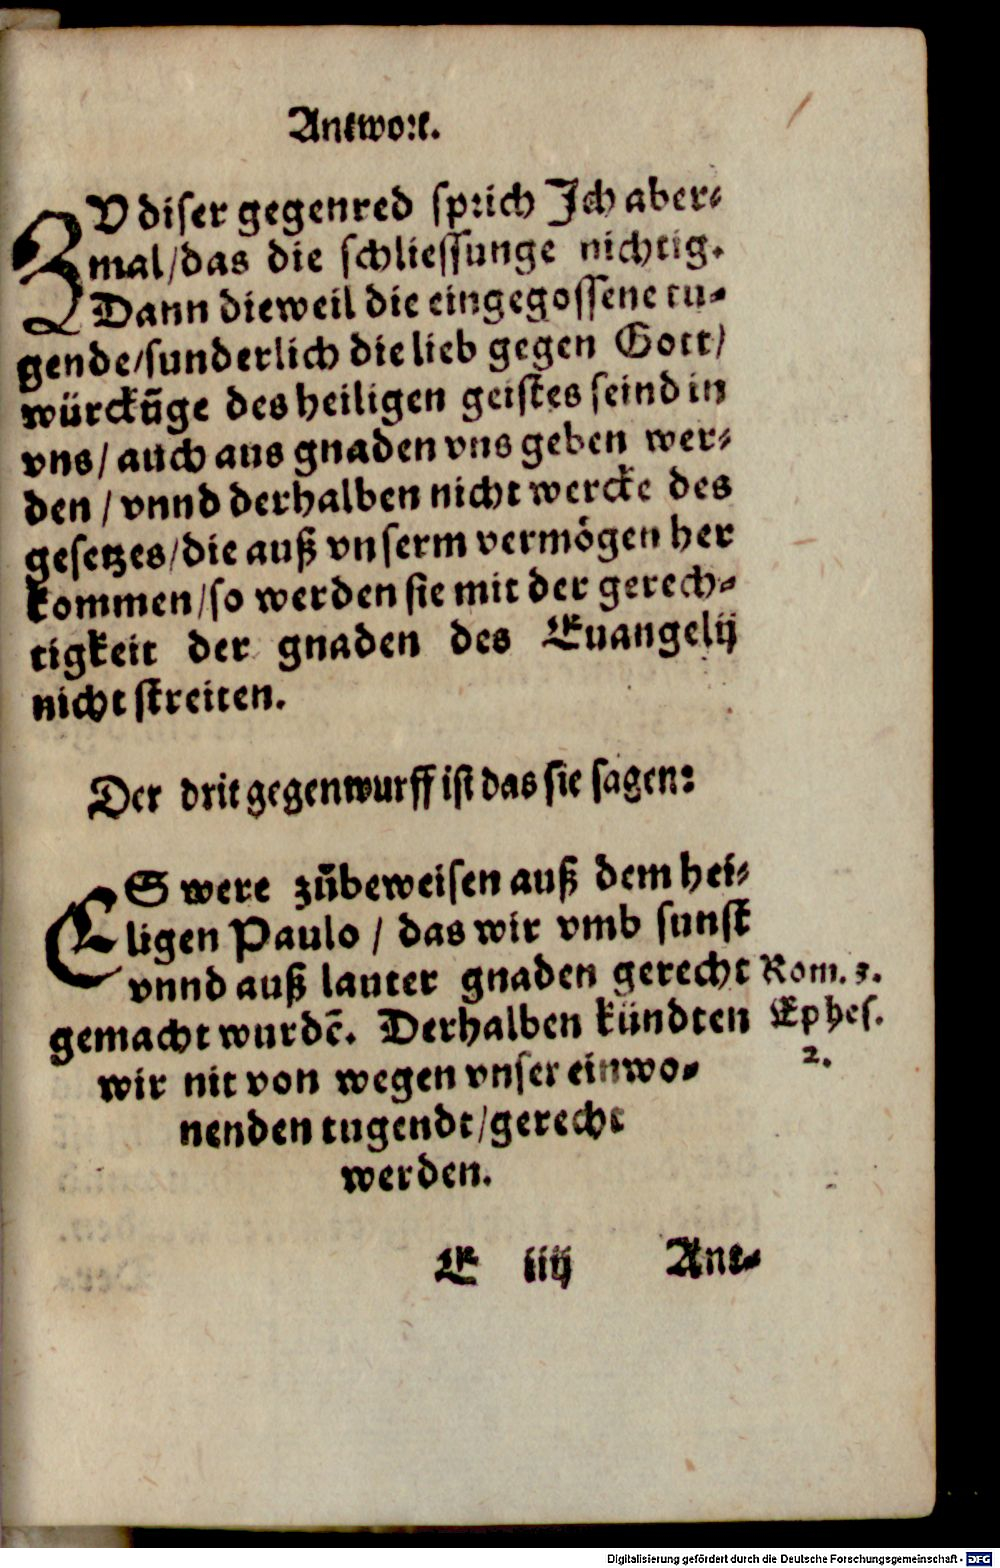 Antwort.
ZV diser gegenred sprich Ich aber⸗
mal/das die schliessunge nichtig.
Dann dieweil die eingegossene tu⸗
gende/sunderlich die lieb gegen Gott/
würckūge des heiligen geistes seind in
vns/ auch aus gnaden vns geben wer⸗
den / vnnd derhalben nicht wercke des
gesetzes/die auß vnserm vermögen her
kommen/so werden sie mit der gerech⸗
tigkeit der gnaden des Euangelij
nicht streiten.
Der drit gegenwurff ist das sie sagen:
ES were zůbeweisen auß dem hei⸗
ligen Paulo / das wir vmb sunst
vnnd auß lauter gnaden gerecht Rom. 3.
gemacht wurdē. Derhalben kündten Ephes.
wir nit von wegen vnser einwo⸗ 2.
nenden tugendt/gerecht
werden.
E iiij Ant⸗
Digitalisierung gefördert durch die Deutsche Forschungsgemeinschaft - DFG